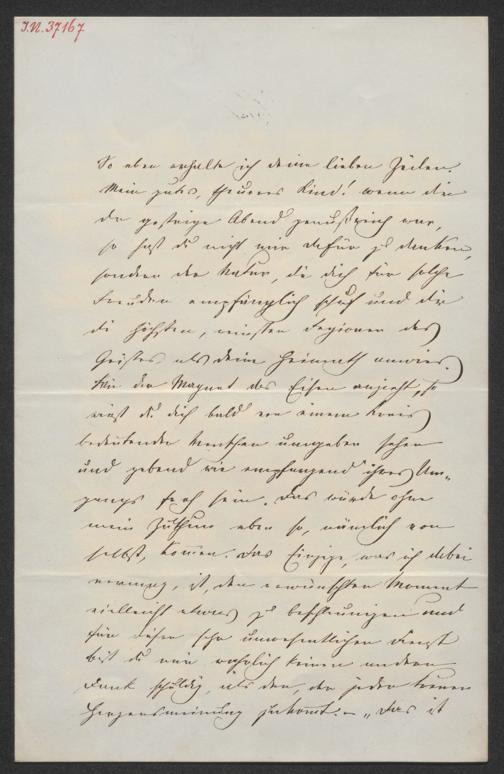 I.N. 37167
So eben erhalte ich deine lieben Zeilen.
Mein gutes, theueres Kind! wenn dir
der gestrige Abend genußreich war,
so hast du nicht mir dafür zu danken,
sondern der Natur, die dich für solche
Freuden empfänglich schuf und dir
die höchsten, reinsten Regionen des
Geistes als deine Heimath anwies.
Wie der Magnet das Eisen anzieht, so
wirst du dich bald von einem Kreis
bedeutender Menschen umgeben sehen
und gebend wie empfangend ihres Um-
gangs froh sein. Das würde ohne
mein Zuthun eben so, nämlich von
selbst, kommen. Das Einzige, was ich dabei
vermag, ist, den erwünschten Moment
vielleicht etwas zu beschleunigen und
für diesen sehr unwesentlichen Dienst
bist du mir wahrlich keinen andern
Dank schuldig, als den, der jeder treuen
Herzensmeinung zukommt. – „Das ist